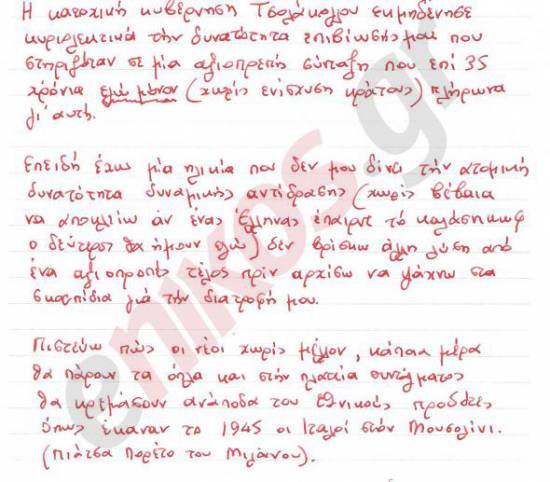 Η κατοχική κυβέρνηση Τσολάκογλου εκμηδένησε
κυριολεκτικά την δυνατότητα επιβίωσής μου που
στηριζόταν σε μία αξιοπρεπή σύνταξη που επί 35
χρόνια εγώ μόνον (χωρίς ενίσχυση κράτους) πλήρωνα
γι' αυτή.
Επειδή έχω μία ηλικία που δεν μου δίνει την ατομική
δυνατότητα δυναμικής αντίδρασης (χωρίς βέβαια
να αποκλείω αν ένας Έλληνας έπαιρνε το καλάσηκωφ
ο δεύτερος θα ήμουν εγώ) δεν βρίσκω άλλη λύση από
ένα αξιοπρεπές τέλος πρίν αρχίσω να ψάχνω στα
σκουπίδια γιά την διατροφή μου.
Πιστεύω πώς οι νέοι χωρίς μέλλον, κάποια μέρα
θα πάρουν τα όπλα και στην πλατεία συντάγματος
θα κρεμάσουν ανάποδα τους εθνικούς προδότες
όπως έκαναν το 1945 οι Ιταλοί στον Μουσολίνι.
(Πιάτσα Πορέτο του Μιλάνου).
enikos.gr